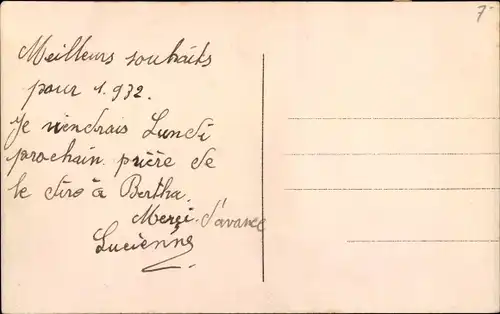 7-
Meilleurs souhaits
pour 1.932.
Je viendrais Lundi
prochain prière de
le dire à Bertha.
Merçi d'avance
Lucienne